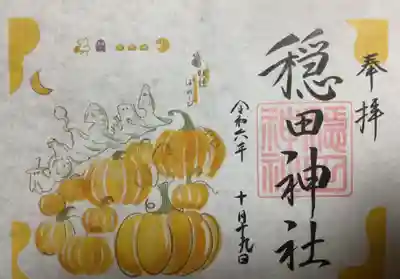 奉拝
穏田神社
令和六年
十月十九日